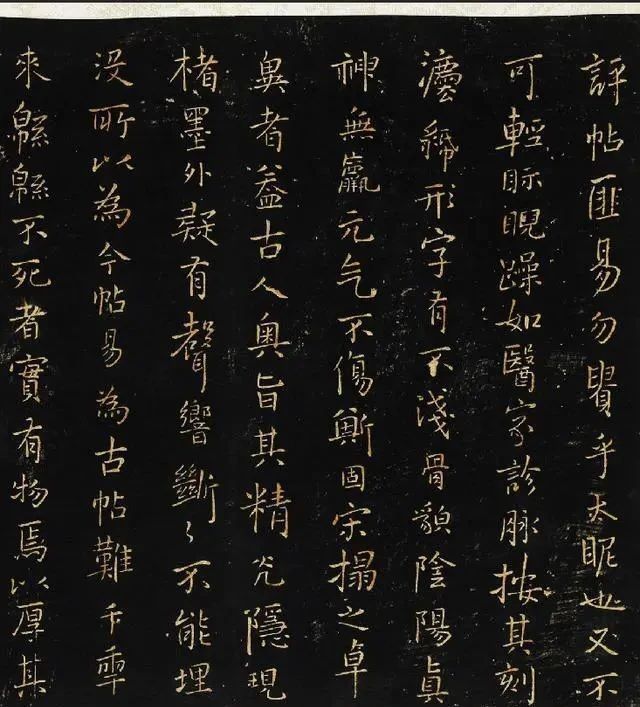 評帖匪易勿乎天眤也又不
可輕眎睨躁如醫家診脈按其刻
形字有不淺骨䫉陰陽真
神無羸元气不傷斯固宋搨之卓
異者葢古人奧旨其精光隱現
楮墨外疑有聲響斷々不能埋
没所以為今帖易為古帖難千秊
來緜緜不死者實有物焉以厚其